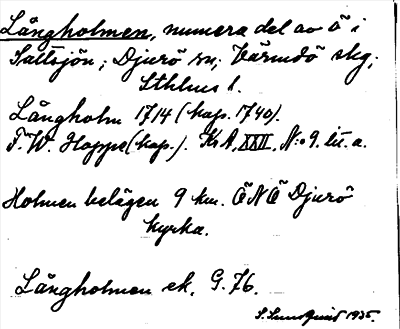 Långholmen, numera del av ö i
Saltsjön; Djurö sn; Värmdö skg;
Sthlms l.
Långholm 1714 (kap. 1740).
F.W. Hoppe (kap.). KrA, XXII, N:o 9. lit. a.
Holmen belägen 9 km. ÖNÖ Djurö
kyrka.
Långholmen ek. G. 76.
S. Sundquist 1935.